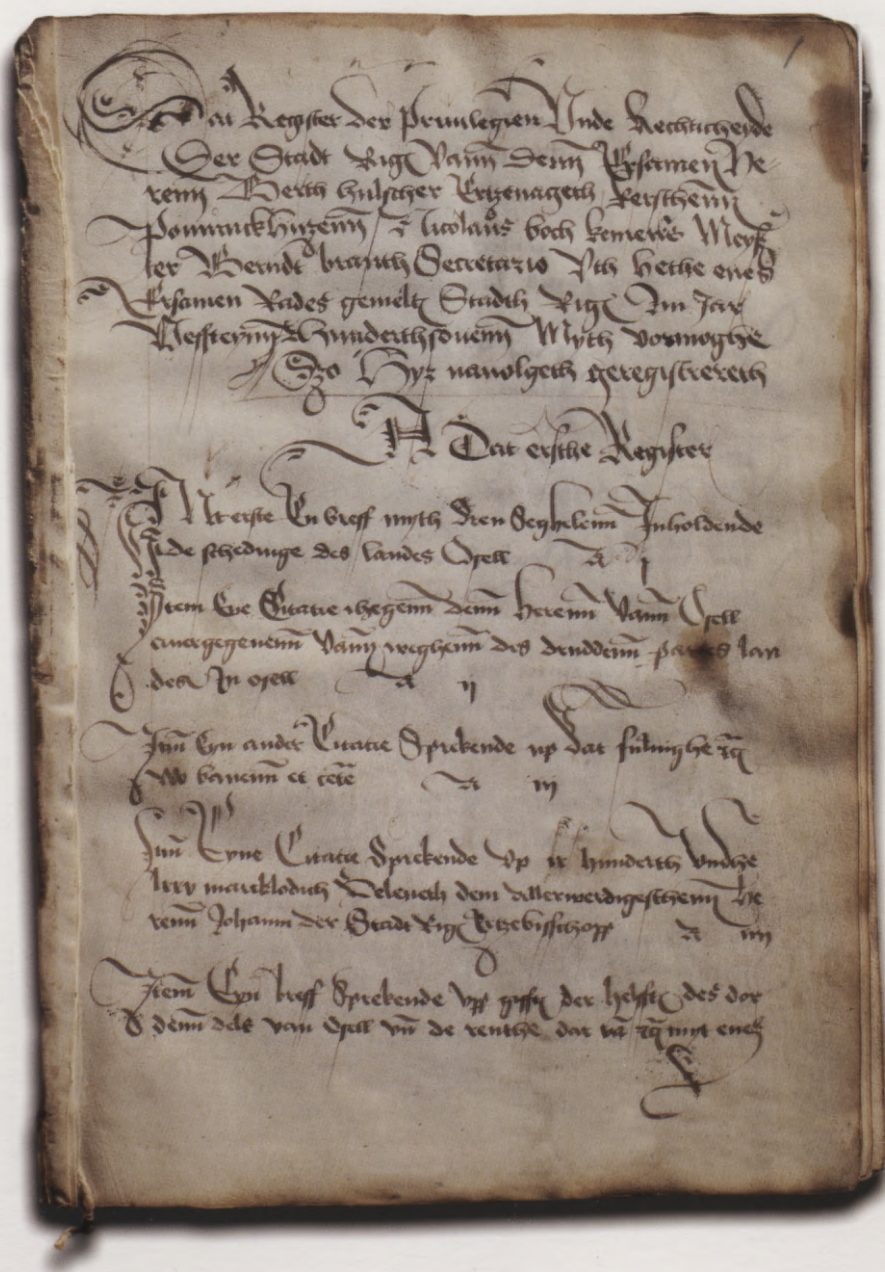 1
Dat Register der Priuilegien Vnde Rechticheyde
Der Stadt Rige Vann Denn Ersamen He
renn Gerth hulscher Kersthenn
vnd Nicolaus boch kemerer Meyst
ter Berndt branth Secretario Vth hethe enes
Ersamen Rades gemelt Stadth Rige Im Jare
Veffteyn Hunderthsouenn Myth vormoghe
Szo Hyr nauolgeth geregistrereth
A Dat ersthe Register
Int erste En breff myth dren Seghelenn Inholdende
de schedinge des landes Osell A j
Item Ene Citatie thegenn denn herenn Vann Osell
auergegeuenn Vann weghenn des druddenn partes lan
des In osell A ij
Item Eyn ander Citatie Sprekende vp dat suluighe
wo bauenn et cetera A iij
Item Eyne Citatie Sprekende vp ix hunderth vndhe
lxxv marcklodich Beleneth dem allerwerdigesthenn He
renn Johann der Stadt Rige Ertzebisschopp A iiij
Item Eyn breff Sprekende vpp der helffte des dor
denn dels van Osell vnd de renthe dar van myt enes